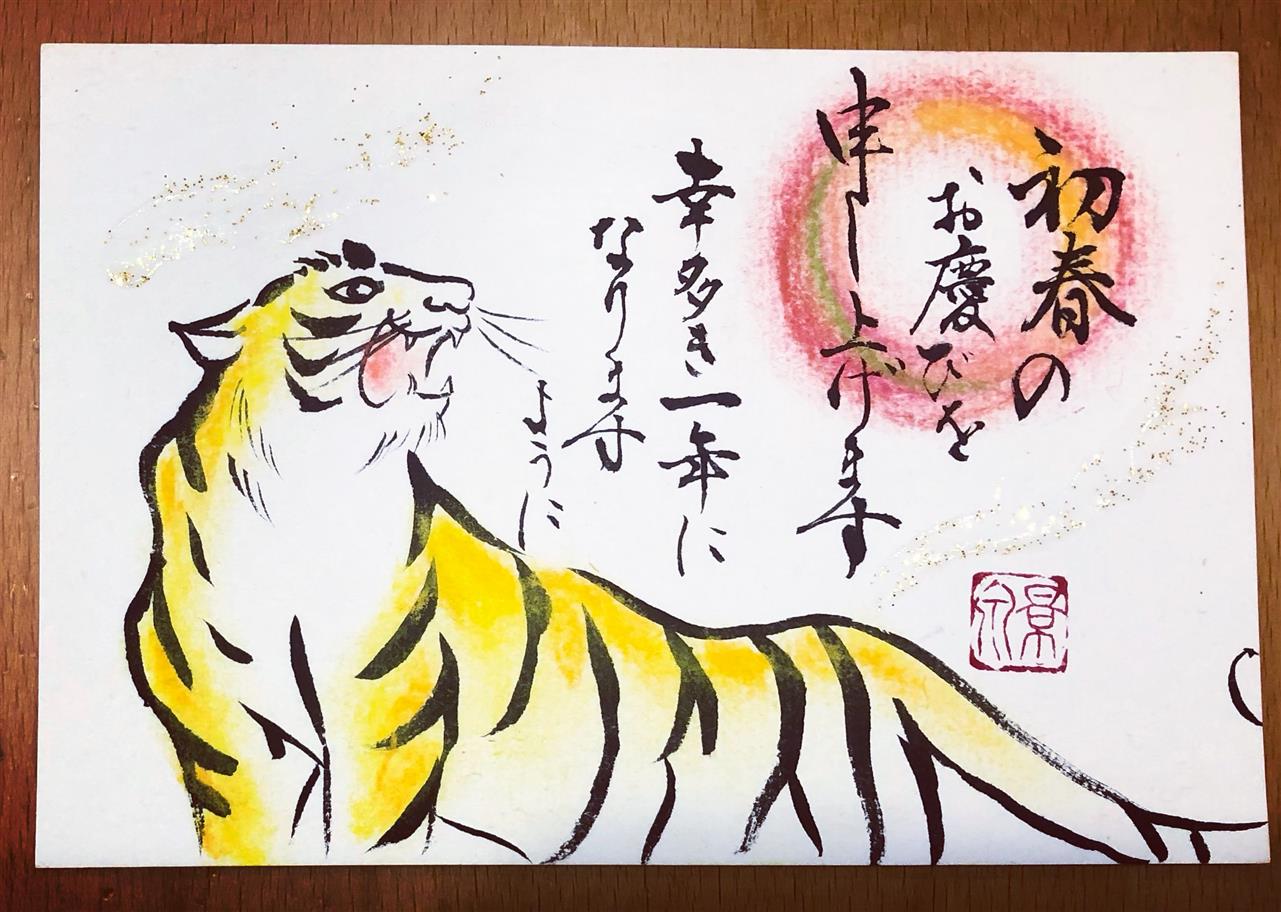 初春の
お慶びを
申し上げます
幸多き一年に
なります
ように